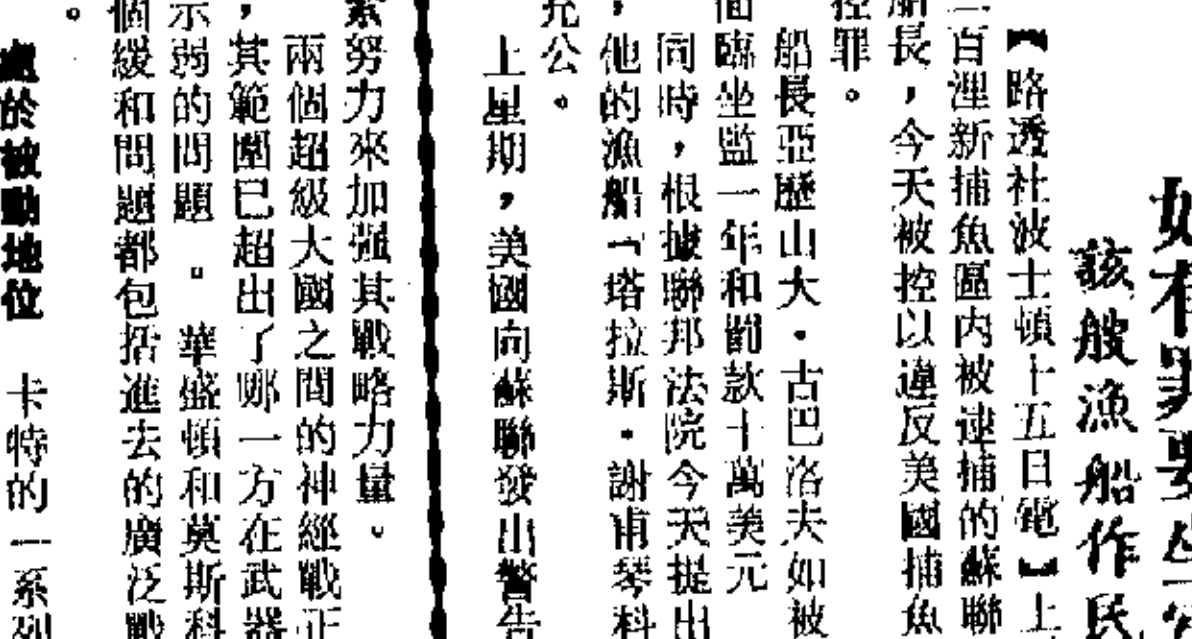 如有罪要坐
該艘漁船作民
【路透社波士頓十五日電】上
二百浬新捕魚區內被逮捕的蘇聯
船長，今天被控以違反美國捕魚
控罪。
船長亞歷山大・古巴洛夫如被
面臨坐監一年和罰款十萬美元
同時，根據聯邦法院今天提出
，他的漁船「塔拉斯・謝甫琴科
充公。
上星期，美國向蘇聯發出警告
索努力來加強其戰略力量。
兩個超級大國之間的神經戰正
，其範圍已超出了哪一方在武器
示弱的問題。華盛頓和莫斯科
個緩和問題都包括進去的廣泛戰
。
處於被動地位　卡特的一系列